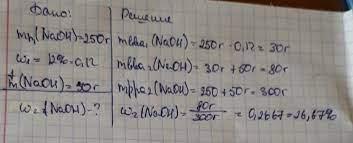 Дано:
mп(NaOH)=250г
ω₁=12%=0,12
m(NaOH)=50г
ω₂(NaOH)-?
Решение
mвва₁(NaOH)=250г·0,12=30г
mвва₂(NaOH)=30г+50г=80г
mрра₂(NaOH)=250+50г=300г
ω₂(NaOH)=80г/300г=0,2667=26,67%